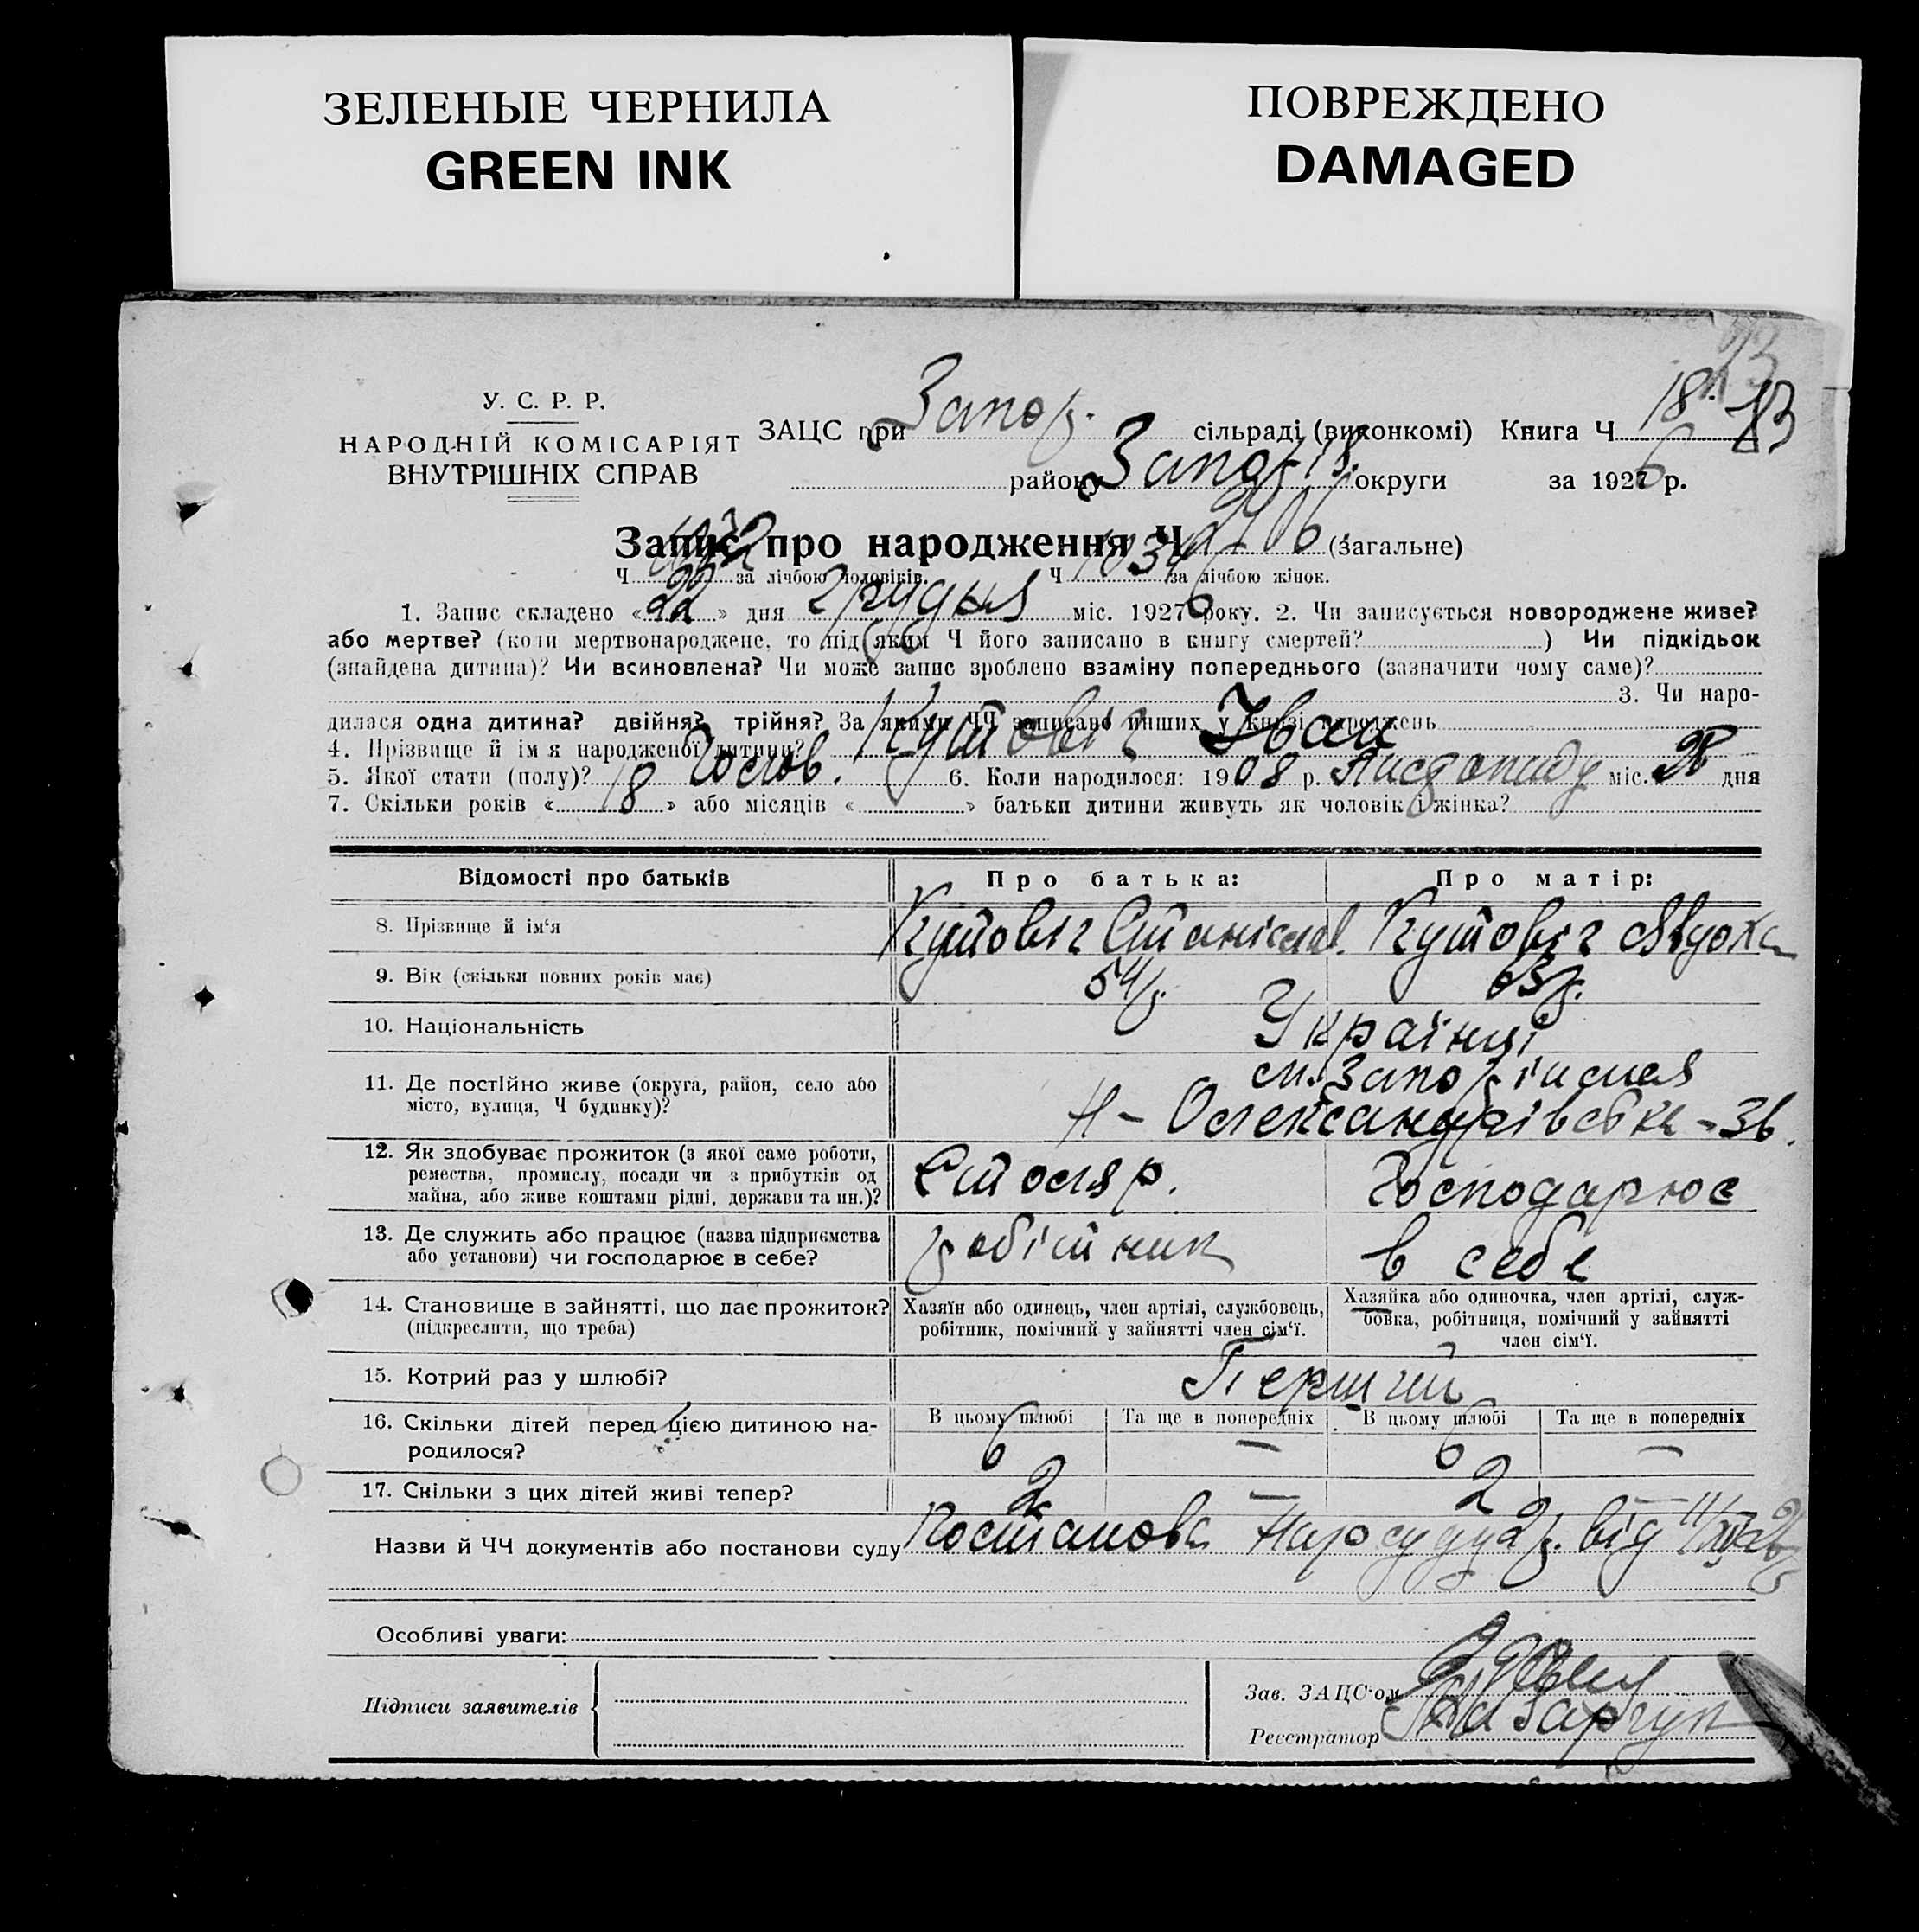 ЗЕЛЕНЫЕ ЧЕРНИЛА
GREEN INK
ПОВРЕЖДЕНО
DAMAGED
У. С. Р. Р.
НАРОДНІЙ КОМІСАРІЯТ
ВНУТРІШНІХ СПРАВ
ЗАЦС при Запор. сільраді (виконкомі) Книга Ч 18
району Запоріз. округи за 1926 р.
Запис про народження Ч 2106 (загальне)
Ч за лічбою чоловіків. Ч 1034 за лічбою жінок.
1. Запис складено « 22 » дня Грудня міс. 1926 року. 2. Чи записується новороджене живе?
або мертве? (коли мертвонароджене, то під яким Ч його записано в книгу смертей? ) Чи підкідьок
(знайдена дитина)? Чи всиновлена? Чи може запис зроблено взаміну попереднього (зазначити чому саме)?
3. Чи наро-
дилася одна дитина? двійня? трійня? За якими ЧЧ записано инших у книзі народжень
4. Прізвище й ім'я народженої дитини? Кутовіч Іван
5. Якої стати (полу)? Чолов. 6. Коли народилося: 1908 р. Листопаду міс. 28 дня
7. Скільки років « 18 » або місяців « » батьки дитини живуть як чоловік і жінка?
Відомості про батьків Про батька: Про матір:
8. Прізвище й ім'я Кутовіч Станіслав. Кутовіч Явдоха
9. Вік (скільки повних років має) 54 р. 63 р.
10. Національність Українці
11. Де постійно живе (округа, район, село або місто, вулиця, Ч будинку)? м. Запоріжжя
Н-Олександрівська - 36.
12. Як здобуває прожиток (з якої саме роботи, Столяр. Господарює
ремества, промислу, посади чи з прибутків од
майна, або живе коштами рідні, держави та ин.)?
13. Де служить або працює (назва підприємства робітник в себе
або установи) чи господарює в себе?
14. Становище в зайнятті, що дає прожиток? Хазяїн або одинець, член артілі, службовець, Хазяйка або одиночка, член артілі, служ-
(підкреслити, що треба) робітник, помічний у зайнятті член сім'ї. бовка, робітниця, помічний у зайнятті
член сім'ї.
15. Котрий раз у шлюбі? Перший
16. Скільки дітей перед цією дитиною на- В цьому шлюбі Та ще в попередніх В цьому шлюбі Та ще в попередніх
родилося? 6 — 6 —
17. Скільки з цих дітей живі тепер? 2 — 2 —
Назви й ЧЧ документів або постанови суду Постанова Нарсуду 2 р. від 11/XII-26 р
Особливі уваги:
Підписи заявителів
Зав. ЗАЦС'ом
Реєстратор